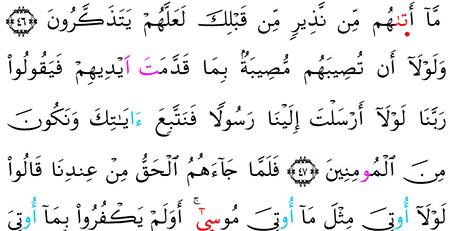 مَّآ أَتٜىٰهُم مِّن نَّذِيرٖ مِّن قَبْلِكَ لَعَلَّهُمْ يَتَذَكَّرُونَ ٤٦
وَلَوْلَآ أَن تُصِيبَهُم مُّصِيبَةُۢ بِمَا قَدَّمَتَ اَيْدِيهِمْ فَيَقُولُوا۟
رَبَّنَا لَوْلَآ أَرْسَلْتَ إِلَيْنَا رَسُولٗا فَنَتَّبِعَ ءَايَٰتِكَ وَنَكُونَ
مِنَ اَ۬لْمُومِنِينَ ٤٧ فَلَمَّا جَآءَهُمُ اُ۬لْحَقُّ مِنْ عِندِنَا قَالُوا۟
لَوْلَآ أُوتِيَ مِثْلَ مَآ أُوتِيَ مُوسٜىٰٓۖ أَوَلَمْ يَكْفُرُوا۟ بِمَآ أُوتِيَ